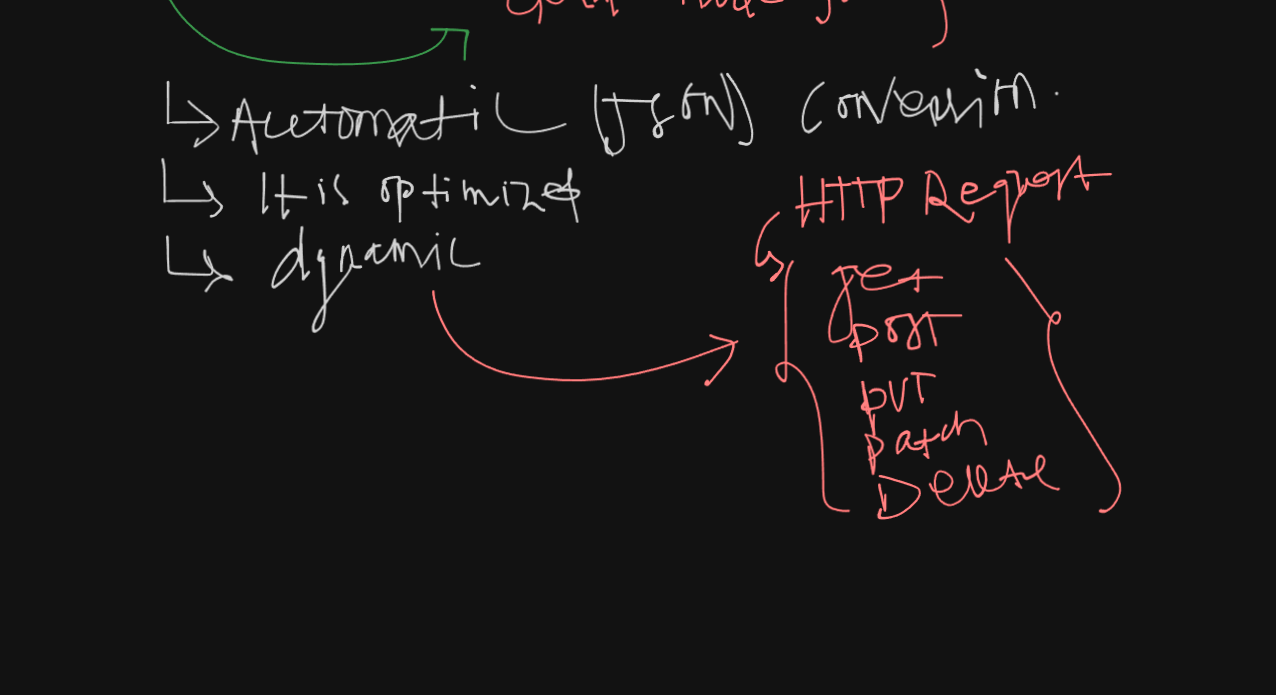 Automatic (JSON) Conversion.
It is optimized
dynamic
HTTP Request
get
post
PUT
patch
Delete